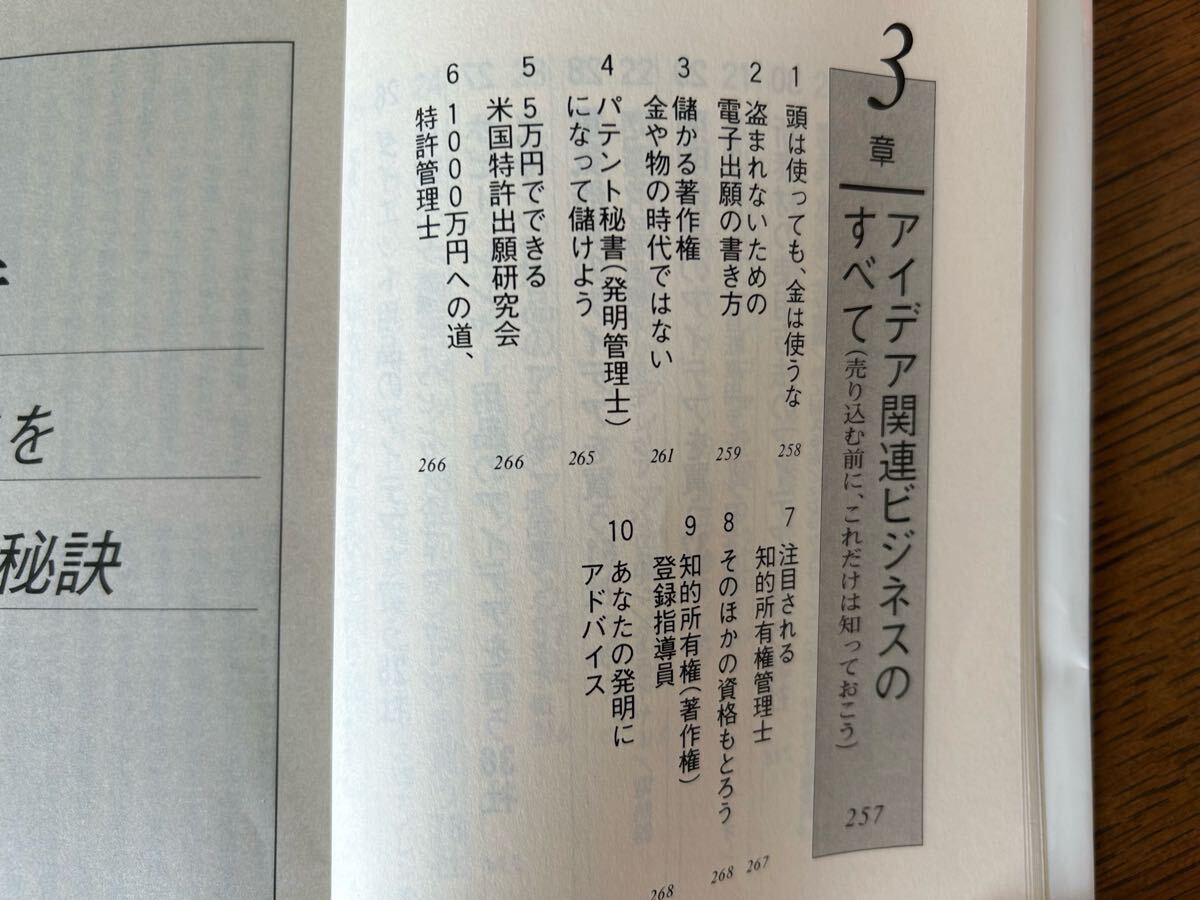 3章 アイデア関連ビジネスの
すべて(売り込む前に、これだけは知っておこう)
257
1 頭は使っても、金は使うな
258
2 盗まれないための
電子出願の書き方
259
3 儲かる著作権
金や物の時代ではない
261
4 パテント秘書(発明管理士)
になって儲けよう
265
5 5万円でできる
米国特許出願研究会
266
6 1000万円への道、
特許管理士
266
7 注目される
知的所有権管理士
267
8 そのほかの資格もとろう
268
9 知的所有権(著作権)
登録指導員
268
10 あなたの発明に
アドバイス
を
秘訣